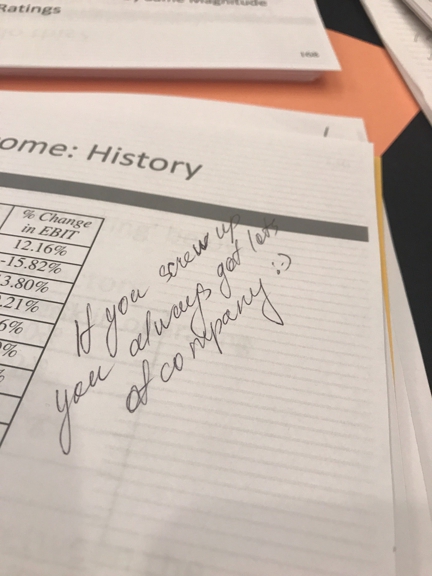 Ratings
Magnitude
168
ome: History
% Change
in EBIT
12.16%
-15.82%
3.80%
.21%
6%
%
%
If you screw up
you always got lots
of company :)